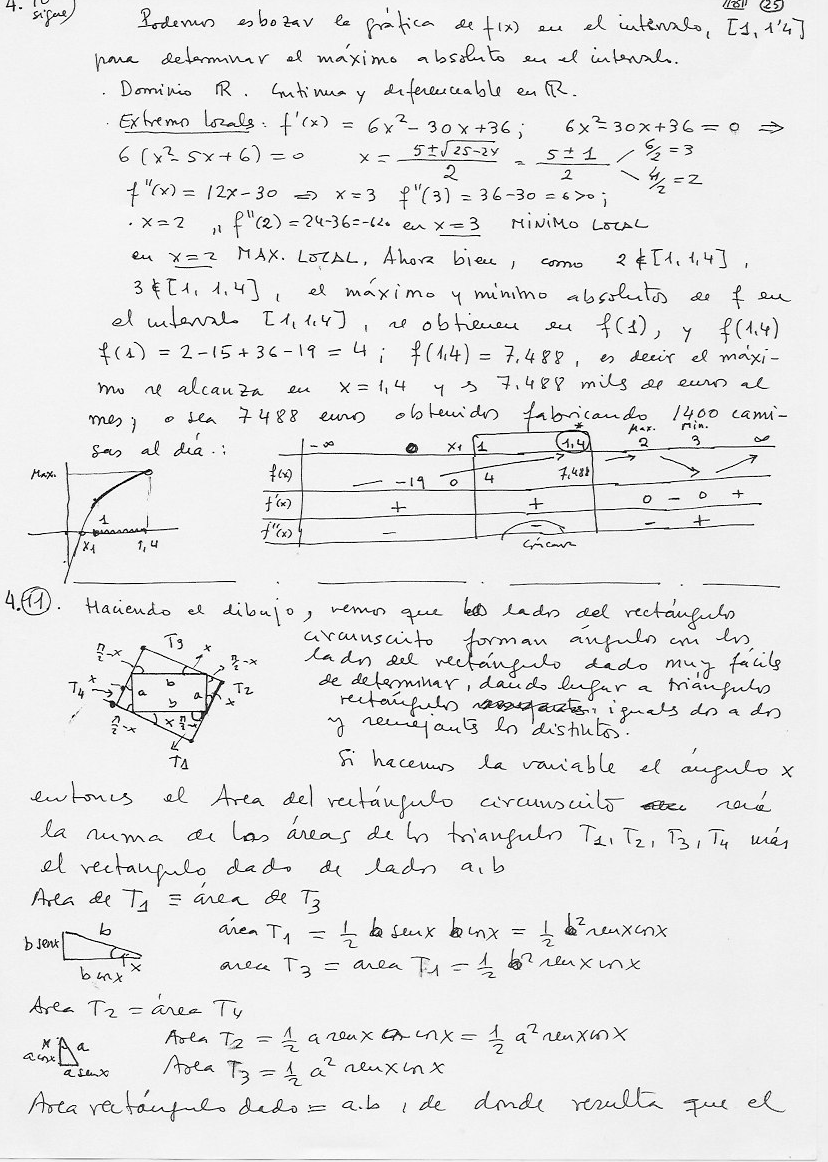 4. 10
sigue)
(25)
Podemos esbozar la gráfica de f(x) en el intervalo, [1, 1'4]
para determinar el máximo absoluto en el intervalo.
· Dominio ℝ. Continua y diferenciable en ℝ.
· Extremos locales: f'(x) = 6x² - 30x + 36 ; 6x² - 30x + 36 = 0 ⇒
6(x² - 5x + 6) = 0 x = (5 ± √(25-24))/2 = (5 ± 1)/2 6/2 = 3 4/2 = 2
f''(x) = 12x - 30 ⇒ x = 3 f''(3) = 36 - 30 = 6 > 0 ;
· x = 2 ,, f''(2) = 24 - 36 = -6<0 en x = 3 MÍNIMO LOCAL
en x = 2 MAX. LOCAL. Ahora bien, como 2 ∉ [1, 1,4],
3 ∉ [1, 1,4], el máximo y mínimo absolutos de f en
el intervalo [1, 1,4], se obtienen en f(1), y f(1,4)
f(1) = 2 - 15 + 36 - 19 = 4 ; f(1,4) = 7,488, es decir el máxi-
mo se alcanza en x = 1,4 y es 7,488 mils de euros al
mes; o sea 7488 euros obtenidos fabricando 1400 cami-
sas al día.:
-∞ 0 x₁ 1 1,4 * Max. 2 Min. 3 ∞
f(x) -19 0 4 7,488
f'(x) + + 0 - 0 +
f''(x) - - - +
Cóncava
Max.
x₁ 1 1,4
4.11. Haciendo el dibujo, vemos que los lados del rectángulo
circunscrito forman ángulos con los
lados del rectángulo dado muy fáciles
de determinar, dando lugar a triángulos
rectángulos iguales dos a dos
y semejantes los distintos.
T3 π/2-x x
π/2-x b
T4 x a a T2
b x
π/2-x x π/2-x
T1
Si hacemos la variable el ángulo x
entonces el Area del rectángulo circunscrito será
la suma de las áreas de los triangulos T1, T2, T3, T4 más
el rectangulo dado de lados a, b
Area de T1 ≡ área de T3
b
b senx
b cosx x
área T1 = 1/2 b senx b cosx = 1/2 b² senx cosx
area T3 = area T1 = 1/2 b² senx cosx
Area T2 = área T4
x a
a cosx
a senx
Area T2 = 1/2 a senx a cosx = 1/2 a² senx cosx
Area T3 = 1/2 a² senx cosx
Area rectángulo dado = a.b, de donde resulta que el